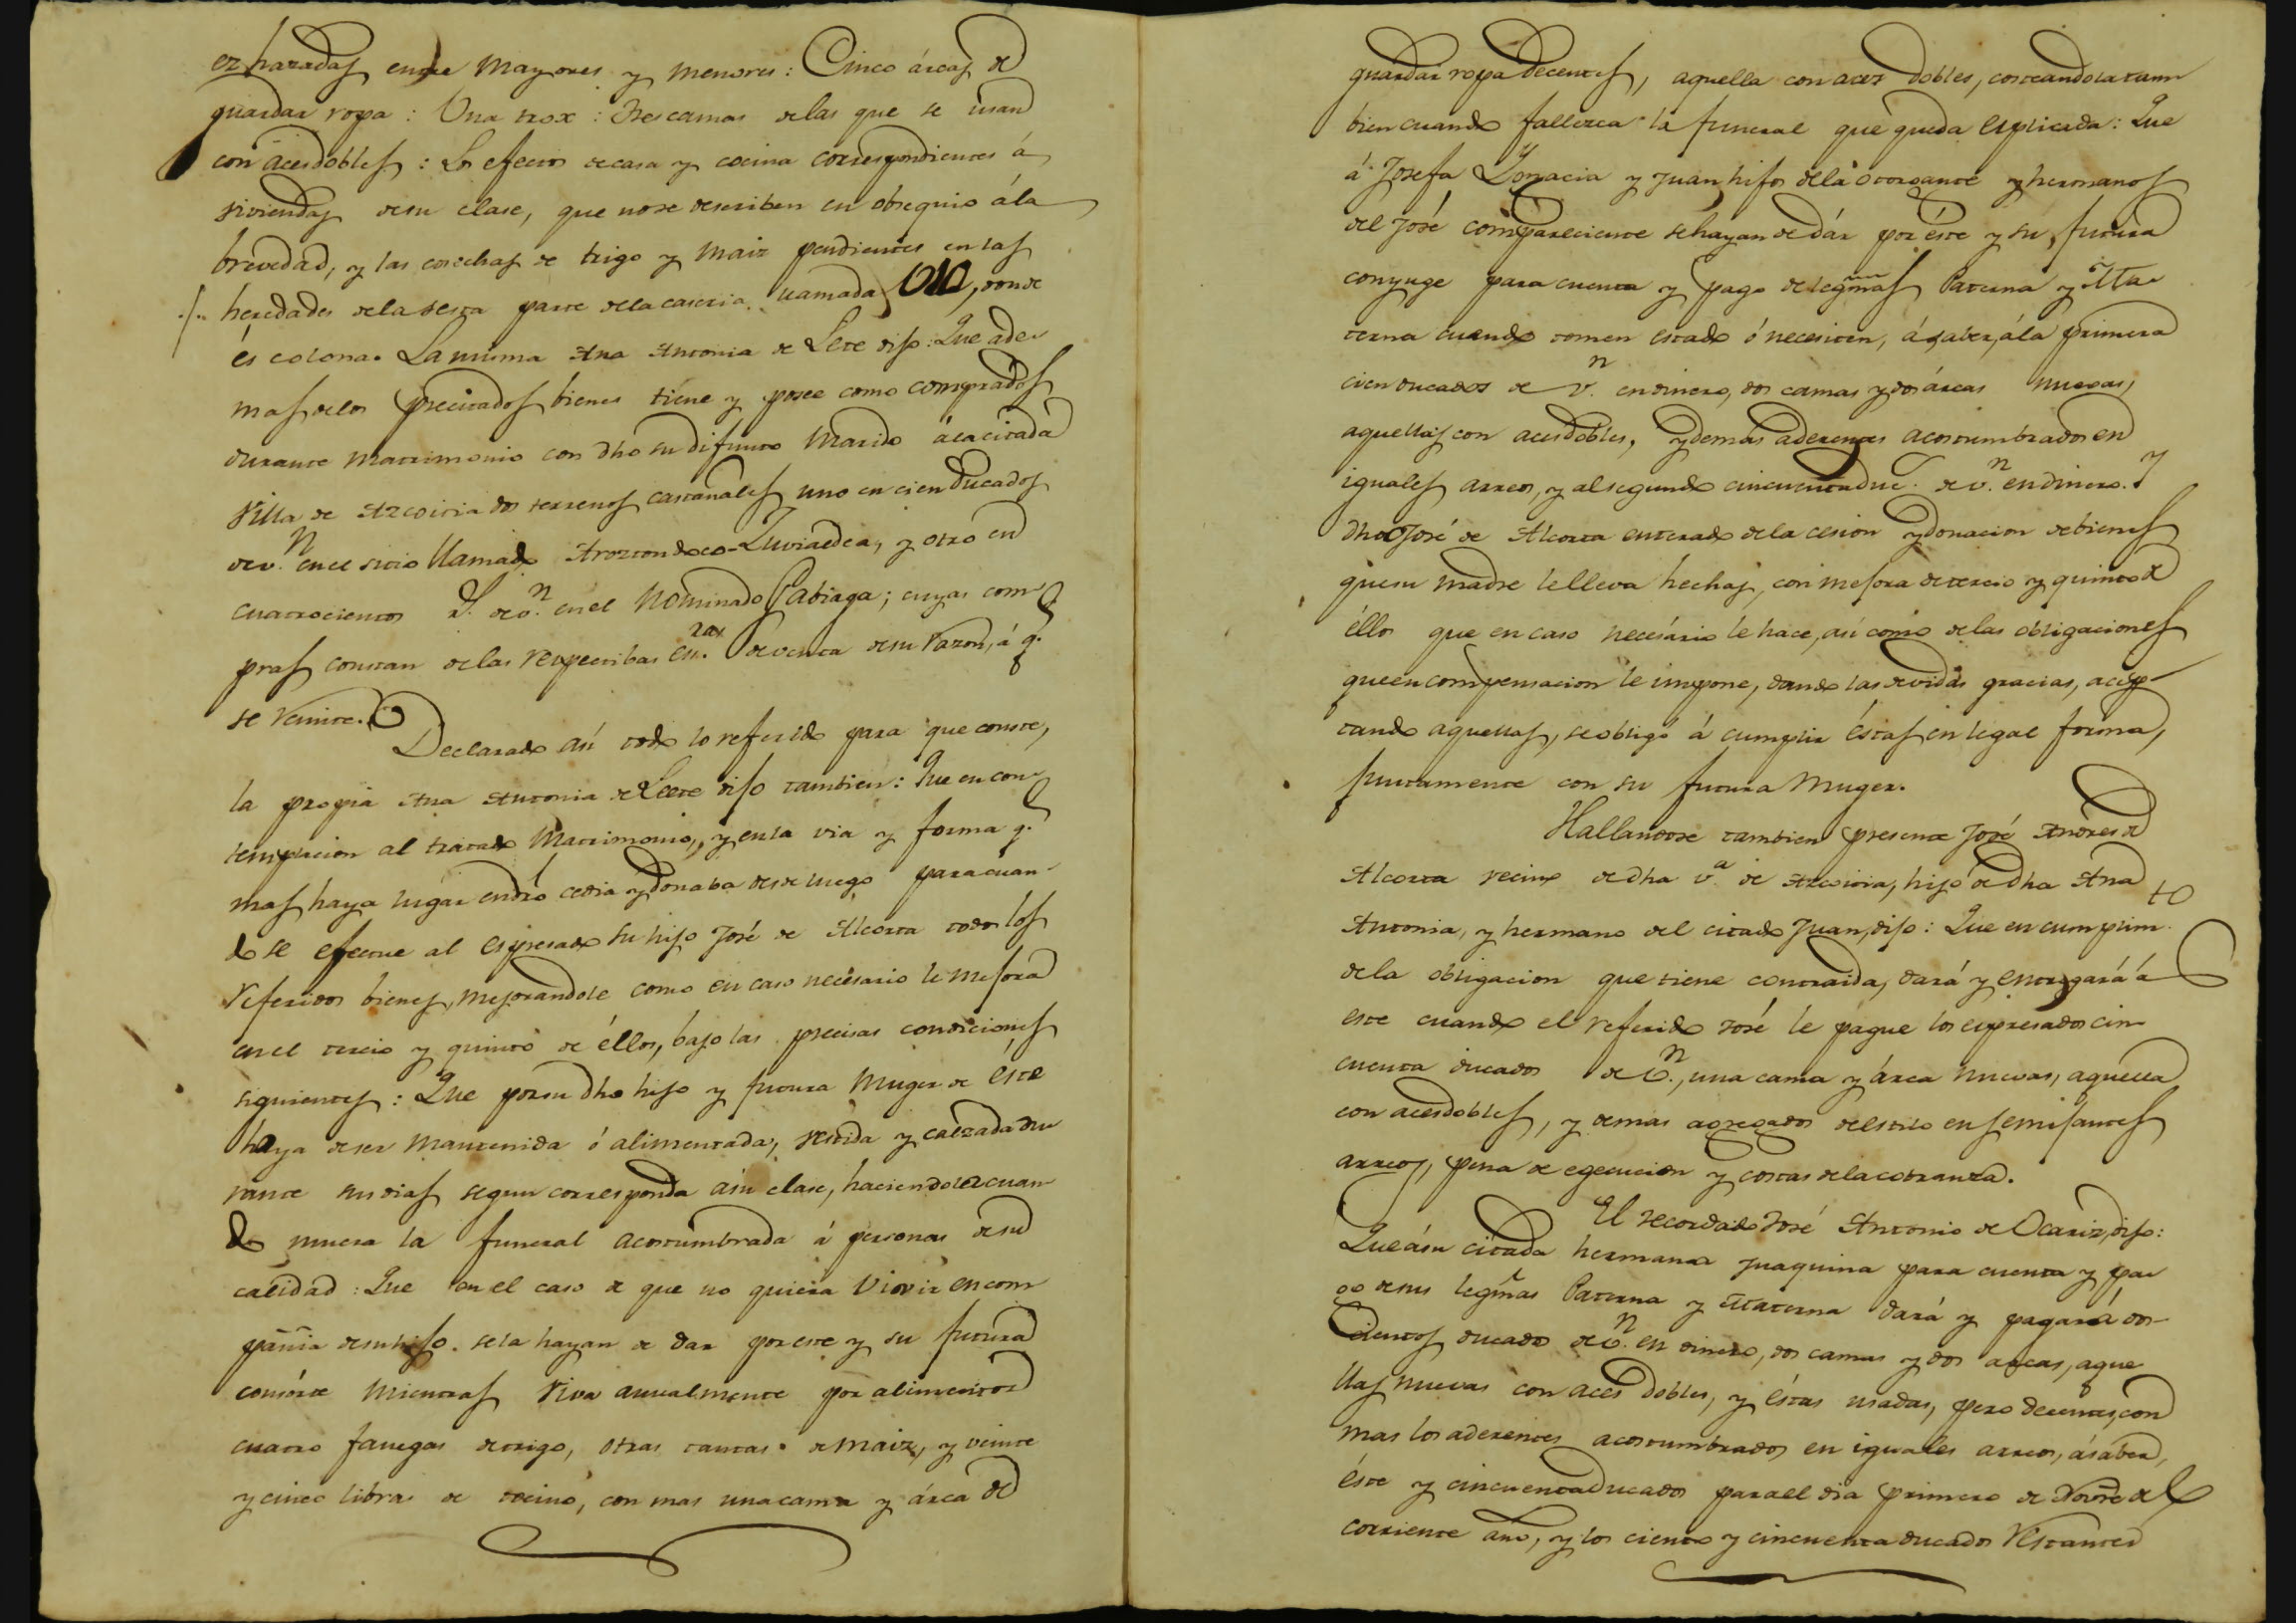 ez hazadas, entre mayores y menores: Cinco árcas de
guardar ropa: Una trox: Tres camas de las que se usan
con acesdobles: Los efectos de casa y cocina correspondientes á
viviendas de su clase, que no se describen en obsequio á la
brevedad, y las cosechas de trigo y maiz pendientes en las
./. heredades de la sesta parte de la caseria llamada, donde
és colona. La misma Ana Antonia de Lete dijo: Que ade-
mas de los precitados bienes tiene y posee como comprados
durante matrimonio con dho su difunto Marido á la citada
Villa de Azcoitia dos terrenos castañales, uno en cien ducados
de v.n en el sitio llamado Aroztondoco-Zuviaedea, y otro en
cuatrocientos r.s de v.n en el nominado Pabiaga; cuyas com-
pras constan de las respectibas es.ras de venta de su razon, á q.e
se remite.
Declarado asi todo lo referido para que conste,
la propia Ana Antonia de Leete dijo tambien: Que en con-
templacion al tratado Matrimonio, y en la via y forma q.e
mas haya lugar en dro cedia y donaba desde luego para cuan-
do se efectue al espresado su hijo José de Alcorta todos los
referidos bienes, mejorandole como en caso necesario le mejora
en el tercio y quinto de éllos, bajo las precisas condiciones
siguientes: Que por su dho hijo y futura Muger de éste
haya de ser mantenida ó alimentada, vestida y calzada du-
rante sus dias segun corresponda á su clase, haciendole cuan-
do muera la funeral acostumbrada á personas de su
calidad: Que en el caso de que no quiera vivir en com-
pañia de su hijo se la hayan de dar por este y su futura
consórte mientras viva anualmente por alimentos
cuatro fanegas de trigo, otras tantas de maiz, y veinte
y cinco libras de tocino, con mas una cama y árca de
guardar ropa decentes, aquella con aces dobles, costeandola tam-
bien cuando fallezca la funeral que queda esplicada: Que
á Josefa Ygnacia y Juan hijos de la otorgante y hermanos
del José compareciente se hayan de dár por éste y su futura
conyuge para cuenta y pago de legmas Paterna y Ma-
terna cuando tomen estado ó necesiten, á saber, á la primera
cien ducados de v.n en dinero, dos camas y dos árcas nuevas,
aquellas con acesdobles, y demás aderentes acostumbrados en
iguales arreos, y al segundo cincuenta duc.s de v.n en dinero. Y
dho José de Alcorta enterado de la cesion y donacion de bienes
que su madre le lleva hechas, con mejora de tercio y quinto de
éllos que en caso necesário le hace, así como de las obligaciones
que en compensacion le impone, dando las devidas gracias, acep-
tando aquellas, se obligó á cumplir éstas en legal forma,
juntamente con su futura Muger.
Hallandose tambien presente José Andres de
Alcorta vecino de dha v.a de Azcoitia, hijo de dha Ana
Antonia, y hermano del citado Juan, dijo: Que en cumplim.to
de la obligacion que tiene contraida, dará y entregará á
este cuando el referido José le pague los espresados cin-
cuenta ducados de v.n, una cama y árca nuevas, aquella
con acesdobles, y demas agregados del estilo en semejantes
arreos, pena de egecucion y costas de la cobranza.
El recordado José Antonio de Ocariz, dijo:
Que á su citada hermana Juaquina para cuenta y pa-
go de sus legmas Paterna y Materna dará y pagará dos-
cientos ducados de v.n en dinero, dos camas y dos arcas, aque-
llas nuevas con aces dobles, y éstas usadas, pero decentes, con
mas los aderentes acostumbrados en iguales arreos, á saber,
éste y cincuenta ducados para el dia primero de Novre del
corriente año, y los ciento y cincuenta ducados restantes